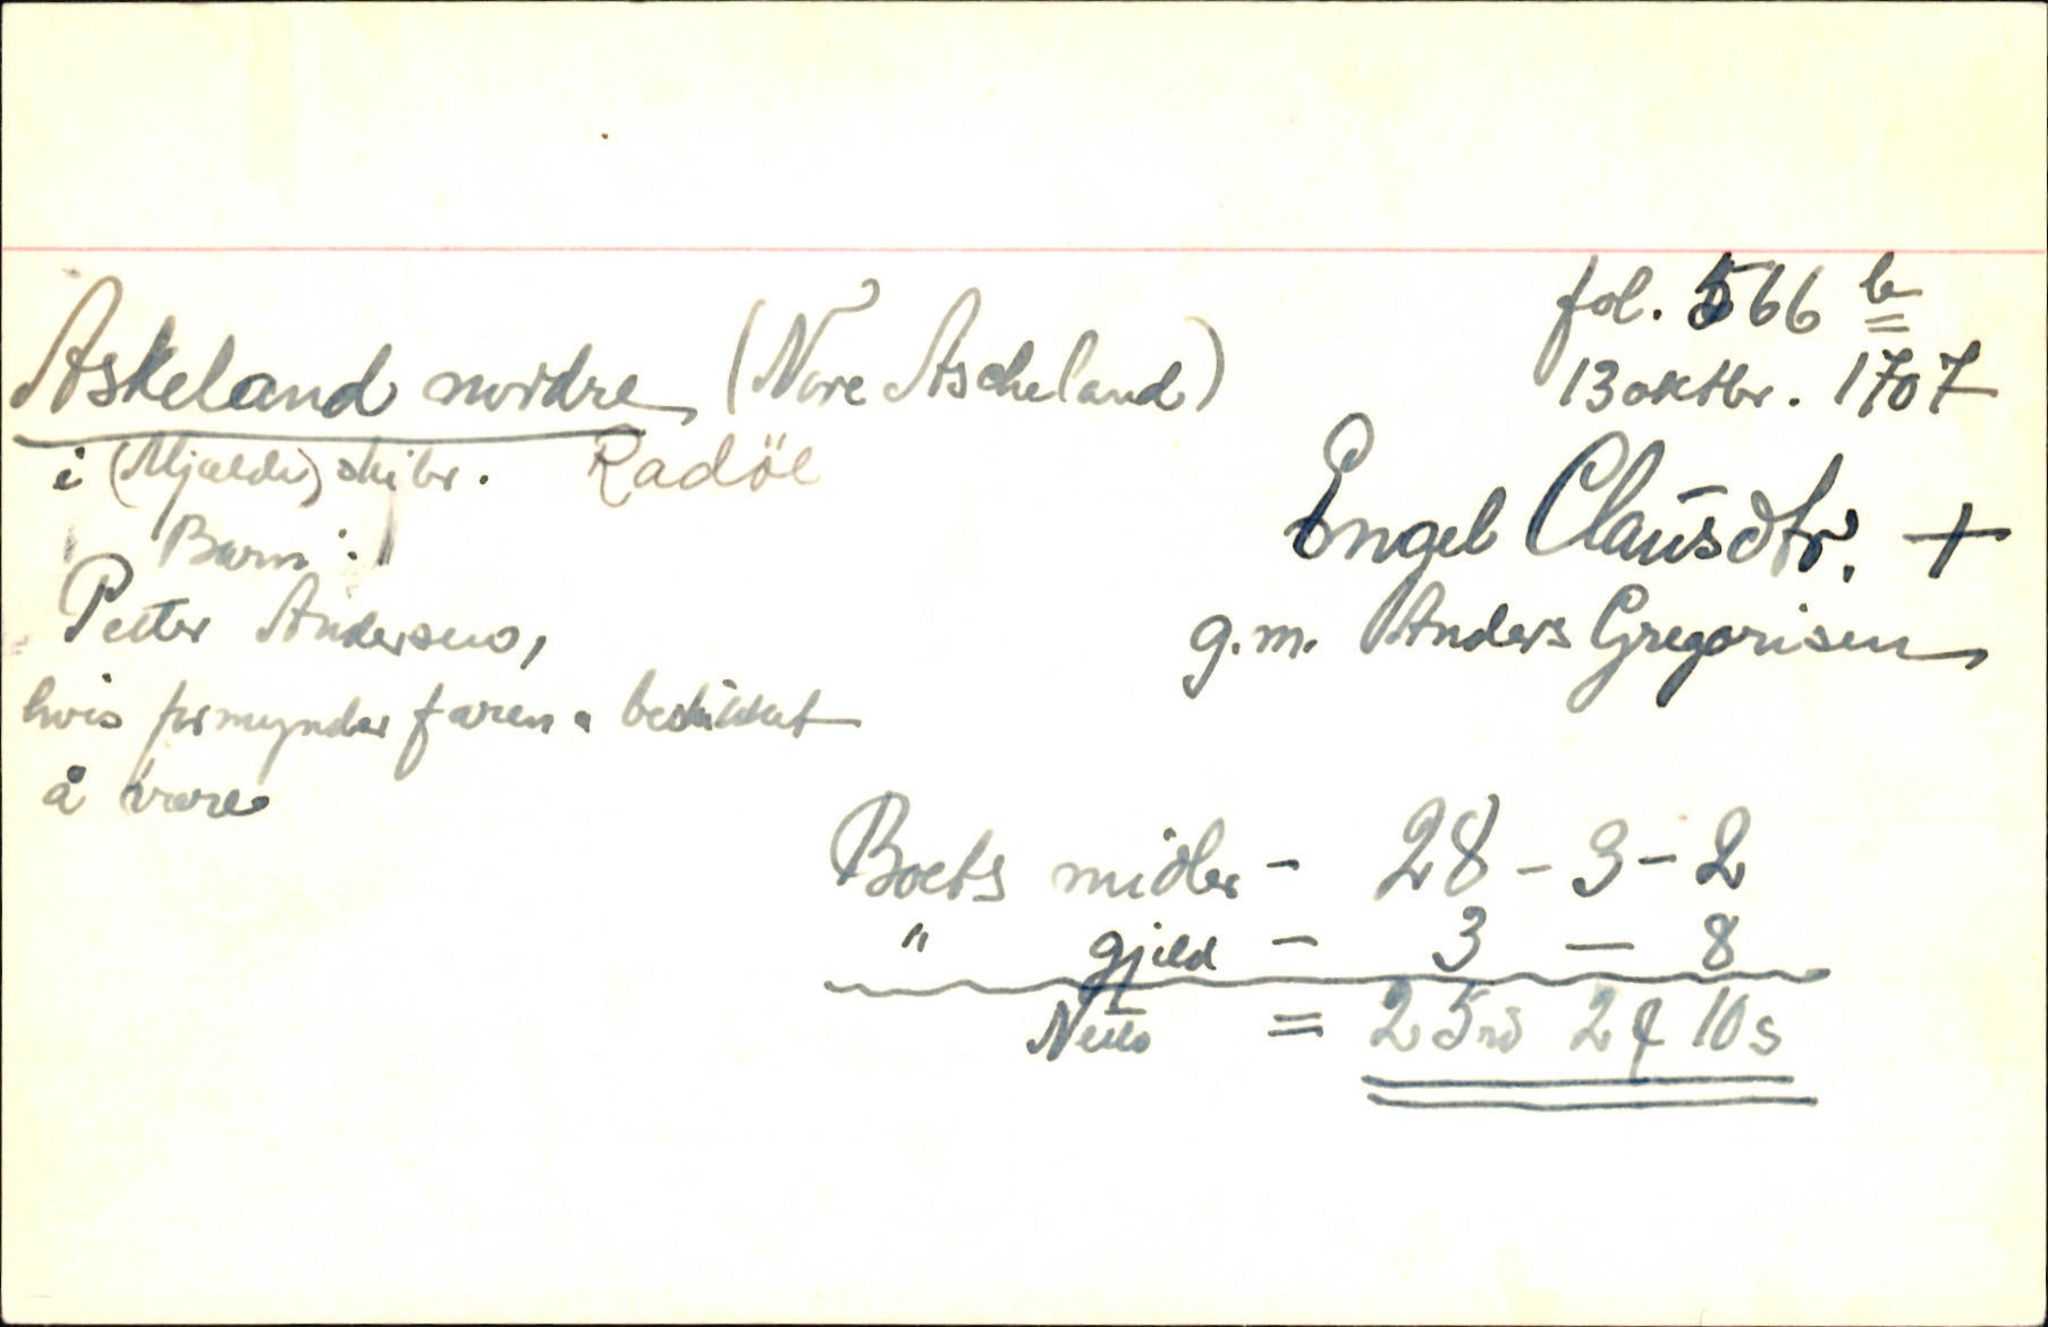 fol. 566 b
13 oktbr. 1707
Askeland nordre (Nore Ascheland)
i (Mjælde) skibr. Radöl
Engel Clausdtr. +
g.m. Anders Gregorisen
Barn:
Petter Andersen,
hvis formynder faren " beskikket
å være
Boets midler - 28 - 3 - 2
" gjeld - 3 — 8
Netto = 25 rd 2 ₰ 10 s